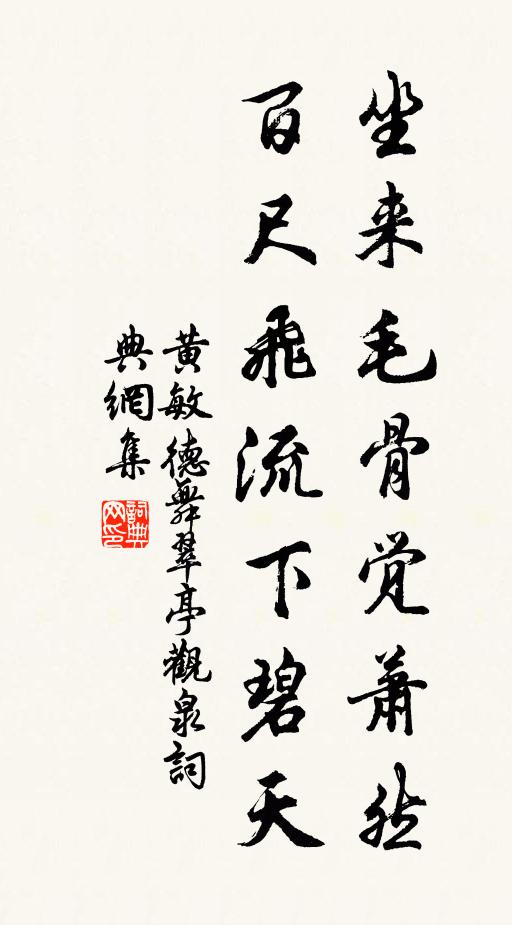 坐来毛骨觉萧然
百尺飛流下碧天
黄敏德舞翠亭觀泉詞
典網集
詞典网印